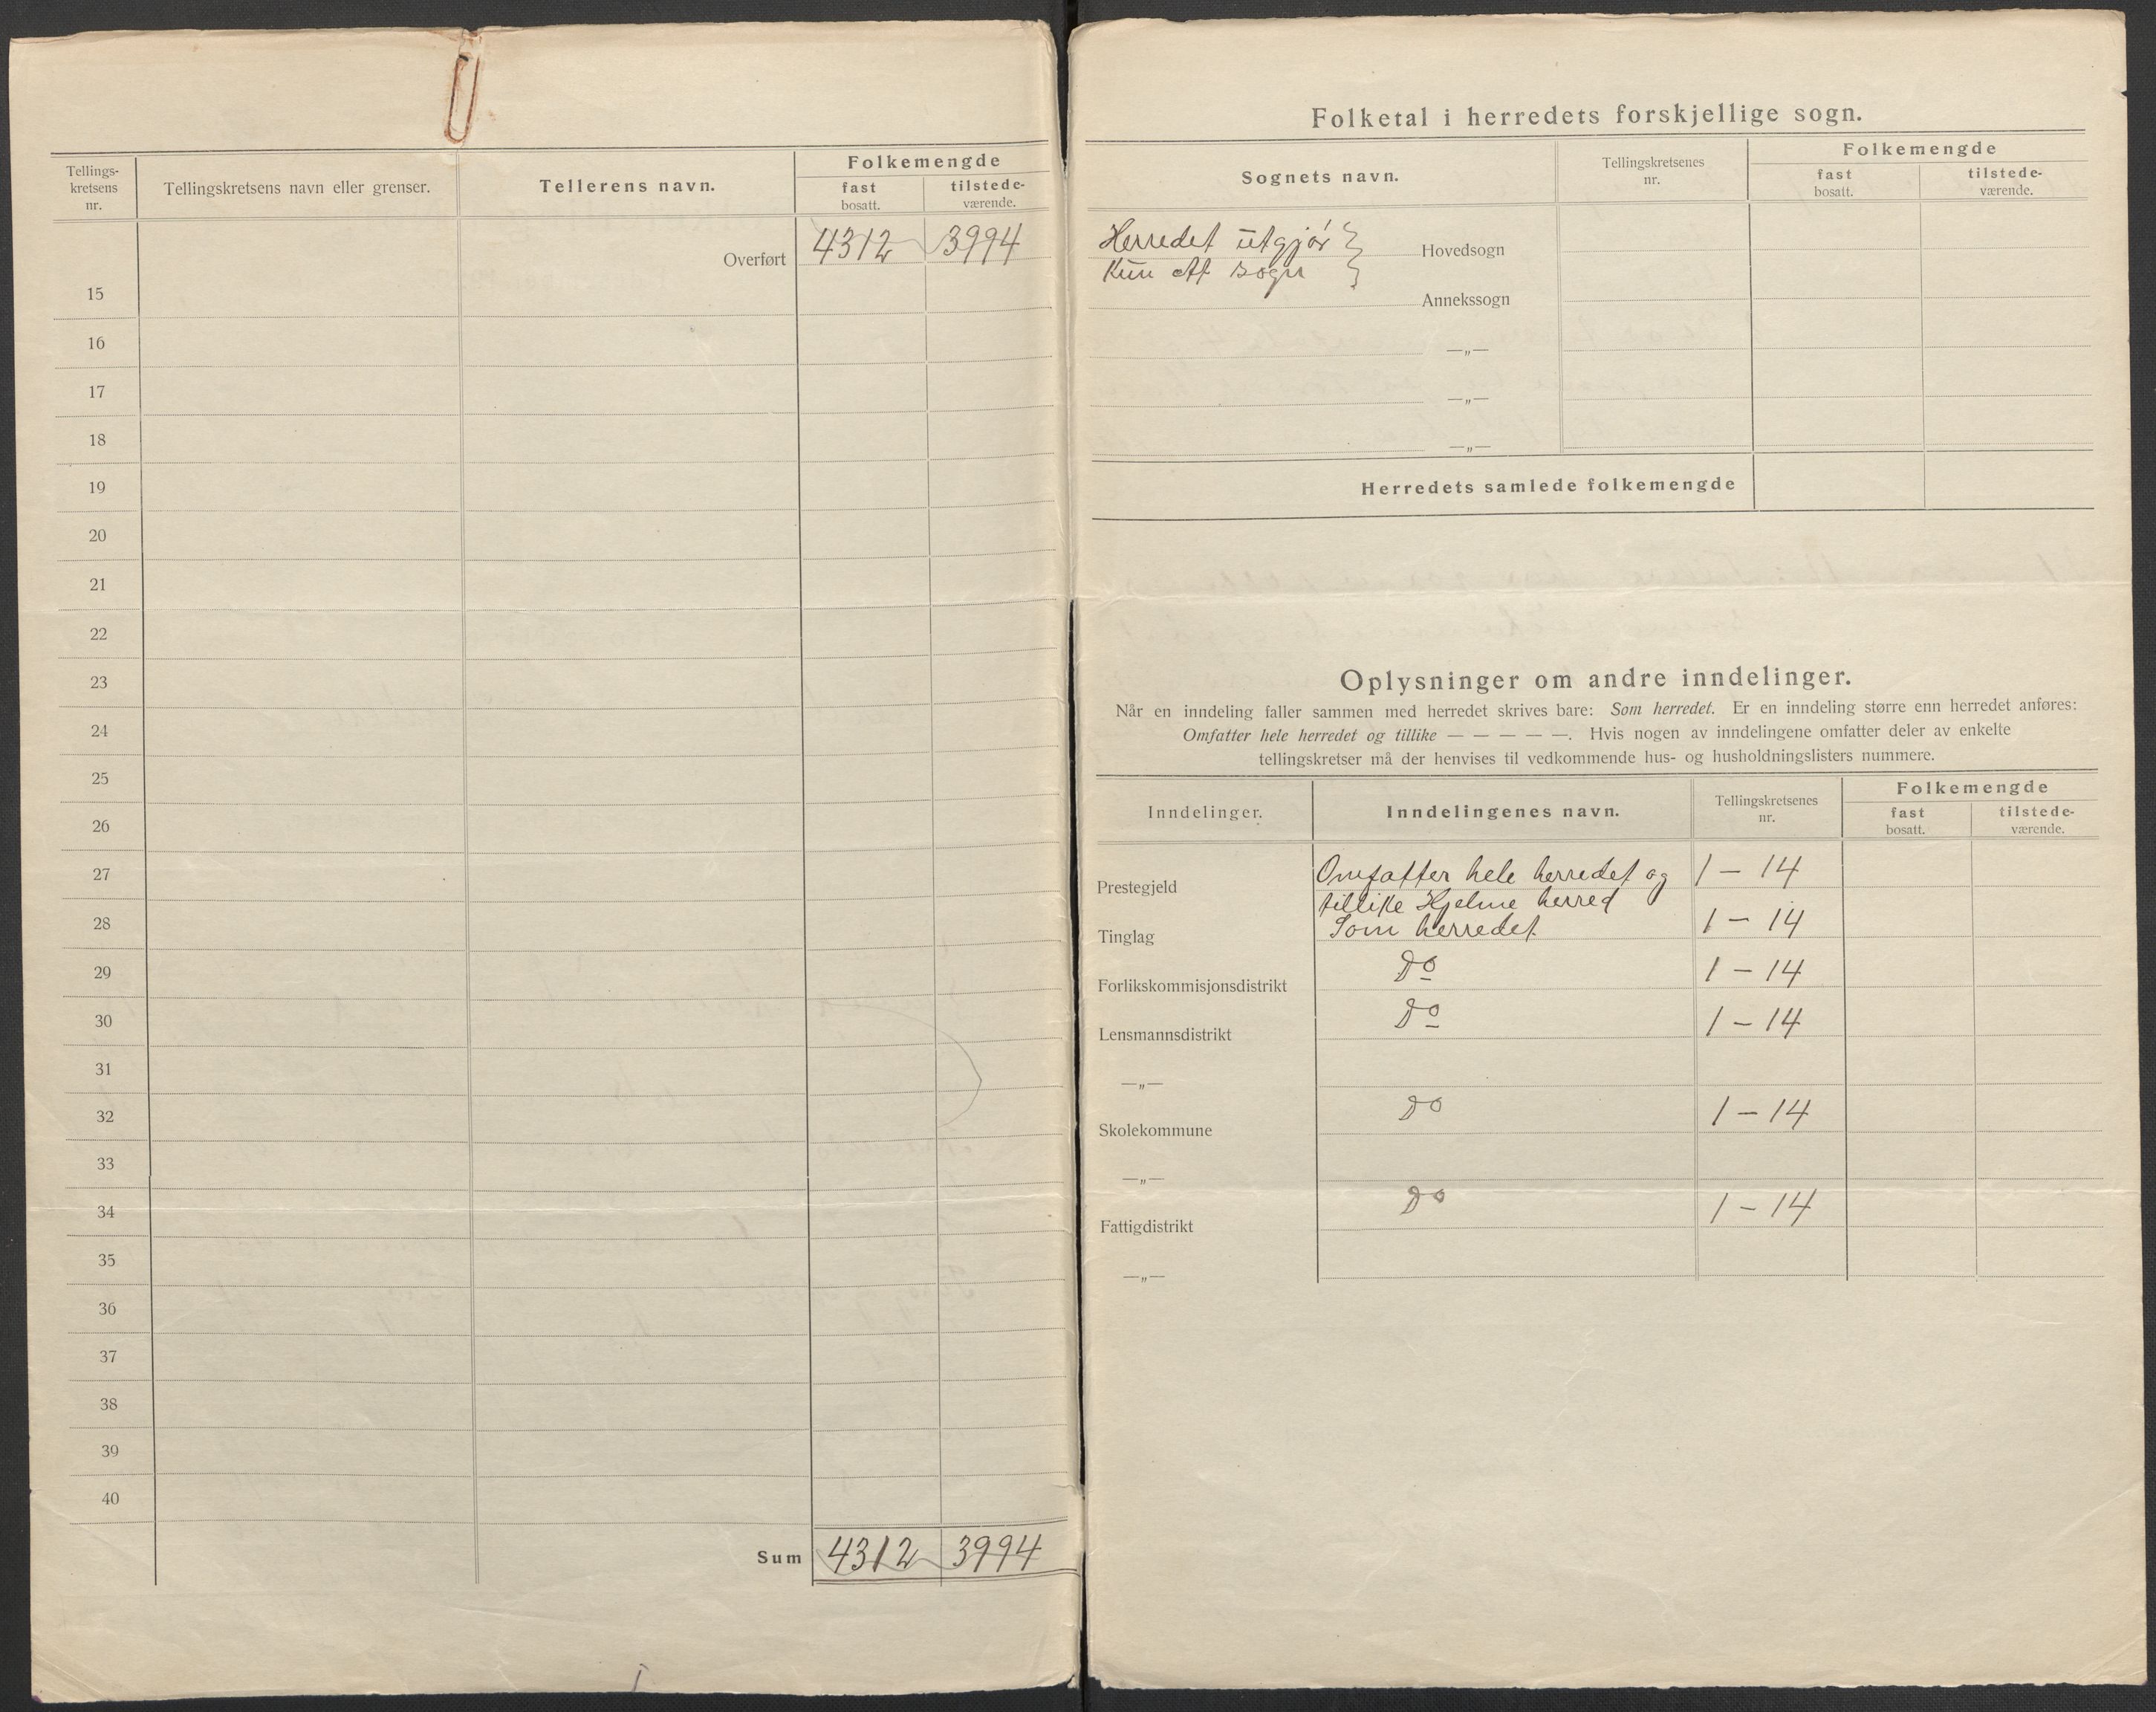 Tellings-
kretsens
nr.
Tellingskretsens navn eller grenser.
Tellerens navn.
Folkemengde
fast
bosatt.
tilstede-
værende.
Overført 4312 3994
15
16
17
18
19
20
21
22
23
24
25
26
27
28
29
30
31
32
33
34
35
36
37
38
39
40
Sum 4312 3994
Folketal i herredets forskjellige sogn.
Sognets navn.
Tellingskretsenes
nr.
Folkemengde
fast
bosatt.
tilstede-
værende.
Herredet utgjør } Hovedsogn
kun ett sogn }
Annekssogn
—„—
—„—
—„—
Herredets samlede folkemengde
Oplysninger om andre inndelinger.
Når en inndeling faller sammen med herredet skrives bare: Som herredet. Er en inndeling større enn herredet anføres:
Omfatter hele herredet og tillike — — — — —. Hvis nogen av inndelingene omfatter deler av enkelte
tellingskretser må der henvises til vedkommende hus- og husholdningslisters nummere.
Inndelinger.
Inndelingenes navn.
Tellingskretsenes
nr.
Folkemengde
fast
bosatt.
tilstede-
værende.
Prestegjeld Omfatter hele herredet og 1 – 14
tillike Hjelme herred
Tinglag Som herredet 1 – 14
Forlikskommisjonsdistrikt Do 1 – 14
Lensmannsdistrikt Do 1 – 14
—„—
Skolekommune Do 1 – 14
—„—
Fattigdistrikt Do 1 – 14
—„—